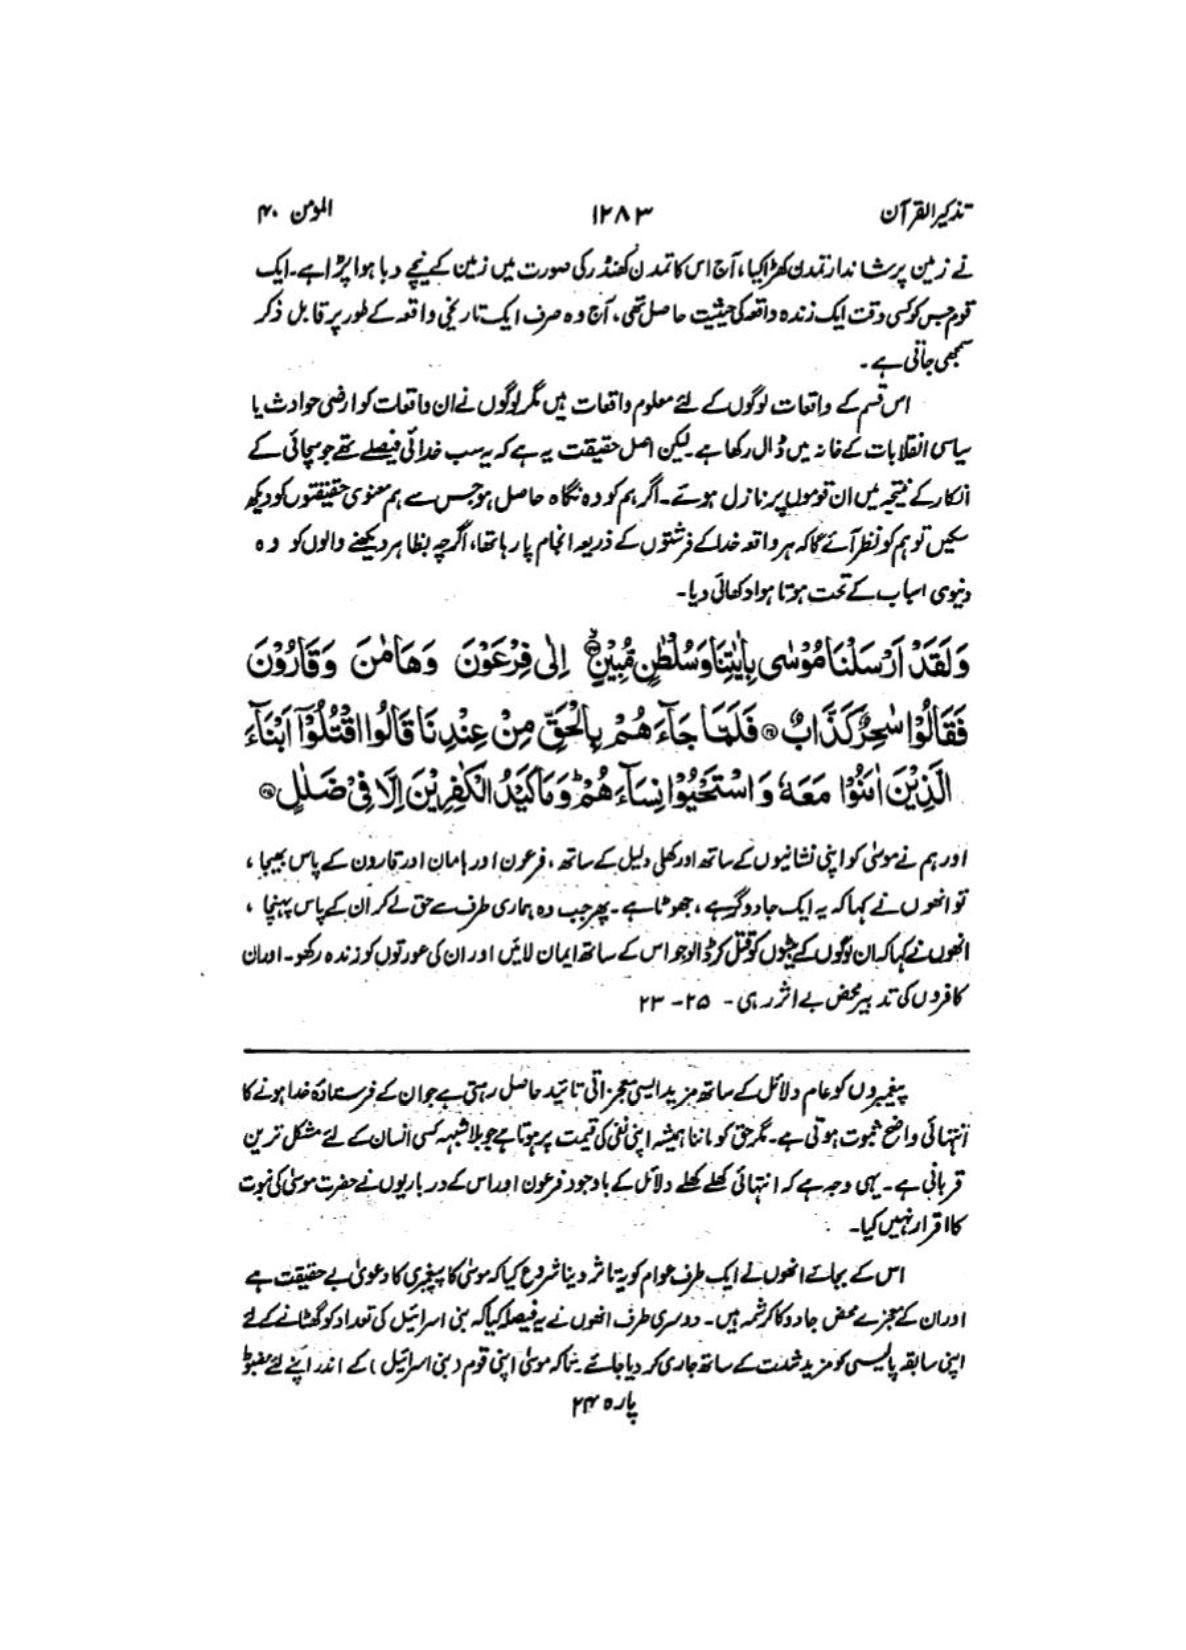 تذکیر القرآن ۱۲۸۳ المومن ۴۰
نے زمین پر شاندار تمدن کھڑا کیا، آج اس کا تمدن کھنڈر کی صورت میں زمین کے نیچے دبا ہوا پڑا ہے۔ ایک
قوم جس کو کسی وقت ایک زندہ واقعہ کی حیثیت حاصل تھی، آج وہ صرف ایک تاریخی واقعہ کے طور پر قابل ذکر
سمجھی جاتی ہے۔
اس قسم کے واقعات لوگوں کے لئے معلوم واقعات ہیں مگر لوگوں نے ان واقعات کو ارضی حوادث یا
سیاسی انقلابات کے خانہ میں ڈال رکھا ہے۔ لیکن اصل حقیقت یہ ہے کہ یہ سب خدائی فیصلے تھے جو سچائی کے
انکار کے نتیجہ میں ان قوموں پر نازل ہوئے۔ اگر ہم کو وہ نگاہ حاصل ہو جس سے ہم معنوی حقیقتوں کو دیکھ
سکیں تو ہم کو نظر آئے گا کہ ہر واقعہ خدا کے فرشتوں کے ذریعہ انجام پا رہا تھا، اگرچہ بظاہر دیکھنے والوں کو وہ
دنیوی اسباب کے تحت ہوتا ہوا دکھائی دیا۔
وَلَقَدْ اَرْسَلْنَا مُوْسٰى بِاٰيٰتِنَا وَسُلْطٰنٍ مُّبِيْنٍ ۙ‏﴿۲۳﴾ اِلٰى فِرْعَوْنَ وَهَامٰنَ وَقَارُوْنَ
فَقَالُوْا سٰحِرٌ كَذَّابٌ ﴿۲۴﴾ فَلَمَّا جَآءَهُمْ بِالْحَقِّ مِنْ عِنْدِنَا قَالُوا اقْتُلُوْۤا اَبْنَآءَ
الَّذِيْنَ اٰمَنُوْا مَعَهٗ وَاسْتَحْيُوْا نِسَآءَهُمْ ؕ وَمَا كَيْدُ الْكٰفِرِيْنَ اِلَّا فِيْ ضَلٰلٍ ﴿۲۵﴾
اور ہم نے موسیٰ کو اپنی نشانیوں کے ساتھ اور کھلی دلیل کے ساتھ، فرعون اور ہامان اور قارون کے پاس بھیجا،
تو انھوں نے کہا کہ یہ ایک جادوگر ہے، جھوٹا ہے۔ پھر جب وہ ہماری طرف سے حق لے کر ان کے پاس پہنچا،
انھوں نے کہا کہ ان لوگوں کے بیٹوں کو قتل کر ڈالو جو اس کے ساتھ ایمان لائیں اور ان کی عورتوں کو زندہ رکھو۔ اور ان
کافروں کی تدبیر محض بے اثر رہی۔ ۲۵-۲۳
پیغمبروں کو عام دلائل کے ساتھ مزید ایسی معجزاتی تائید حاصل رہتی ہے جو ان کے فرستادۂ خدا ہونے کا
انتہائی واضح ثبوت ہوتی ہے۔ مگر حق کو ماننا ہمیشہ اپنی نفی کی قیمت پر ہوتا ہے جو بلا شبہہ کسی انسان کے لئے مشکل ترین
قربانی ہے۔ یہی وجہ ہے کہ انتہائی کھلے کھلے دلائل کے باوجود فرعون اور اس کے درباریوں نے حضرت موسیٰ کی نبوت
کا اقرار نہیں کیا۔
اس کے بجائے انھوں نے ایک طرف عوام کو یہ تاثر دینا شروع کیا کہ موسیٰ کا پیغمبری کا دعویٰ بے حقیقت ہے
اور ان کے معجزے محض جادو کا کرشمہ ہیں۔ دوسری طرف انھوں نے یہ فیصلہ کیا کہ بنی اسرائیل کی تعداد کو گھٹانے کے لئے
اپنی سابقہ پالیسی کو مزید شدت کے ساتھ جاری کر دیا جائے۔ تاکہ موسیٰ اپنی قوم (بنی اسرائیل) کے اندر اپنے لئے مضبوط
پارہ ۲۴